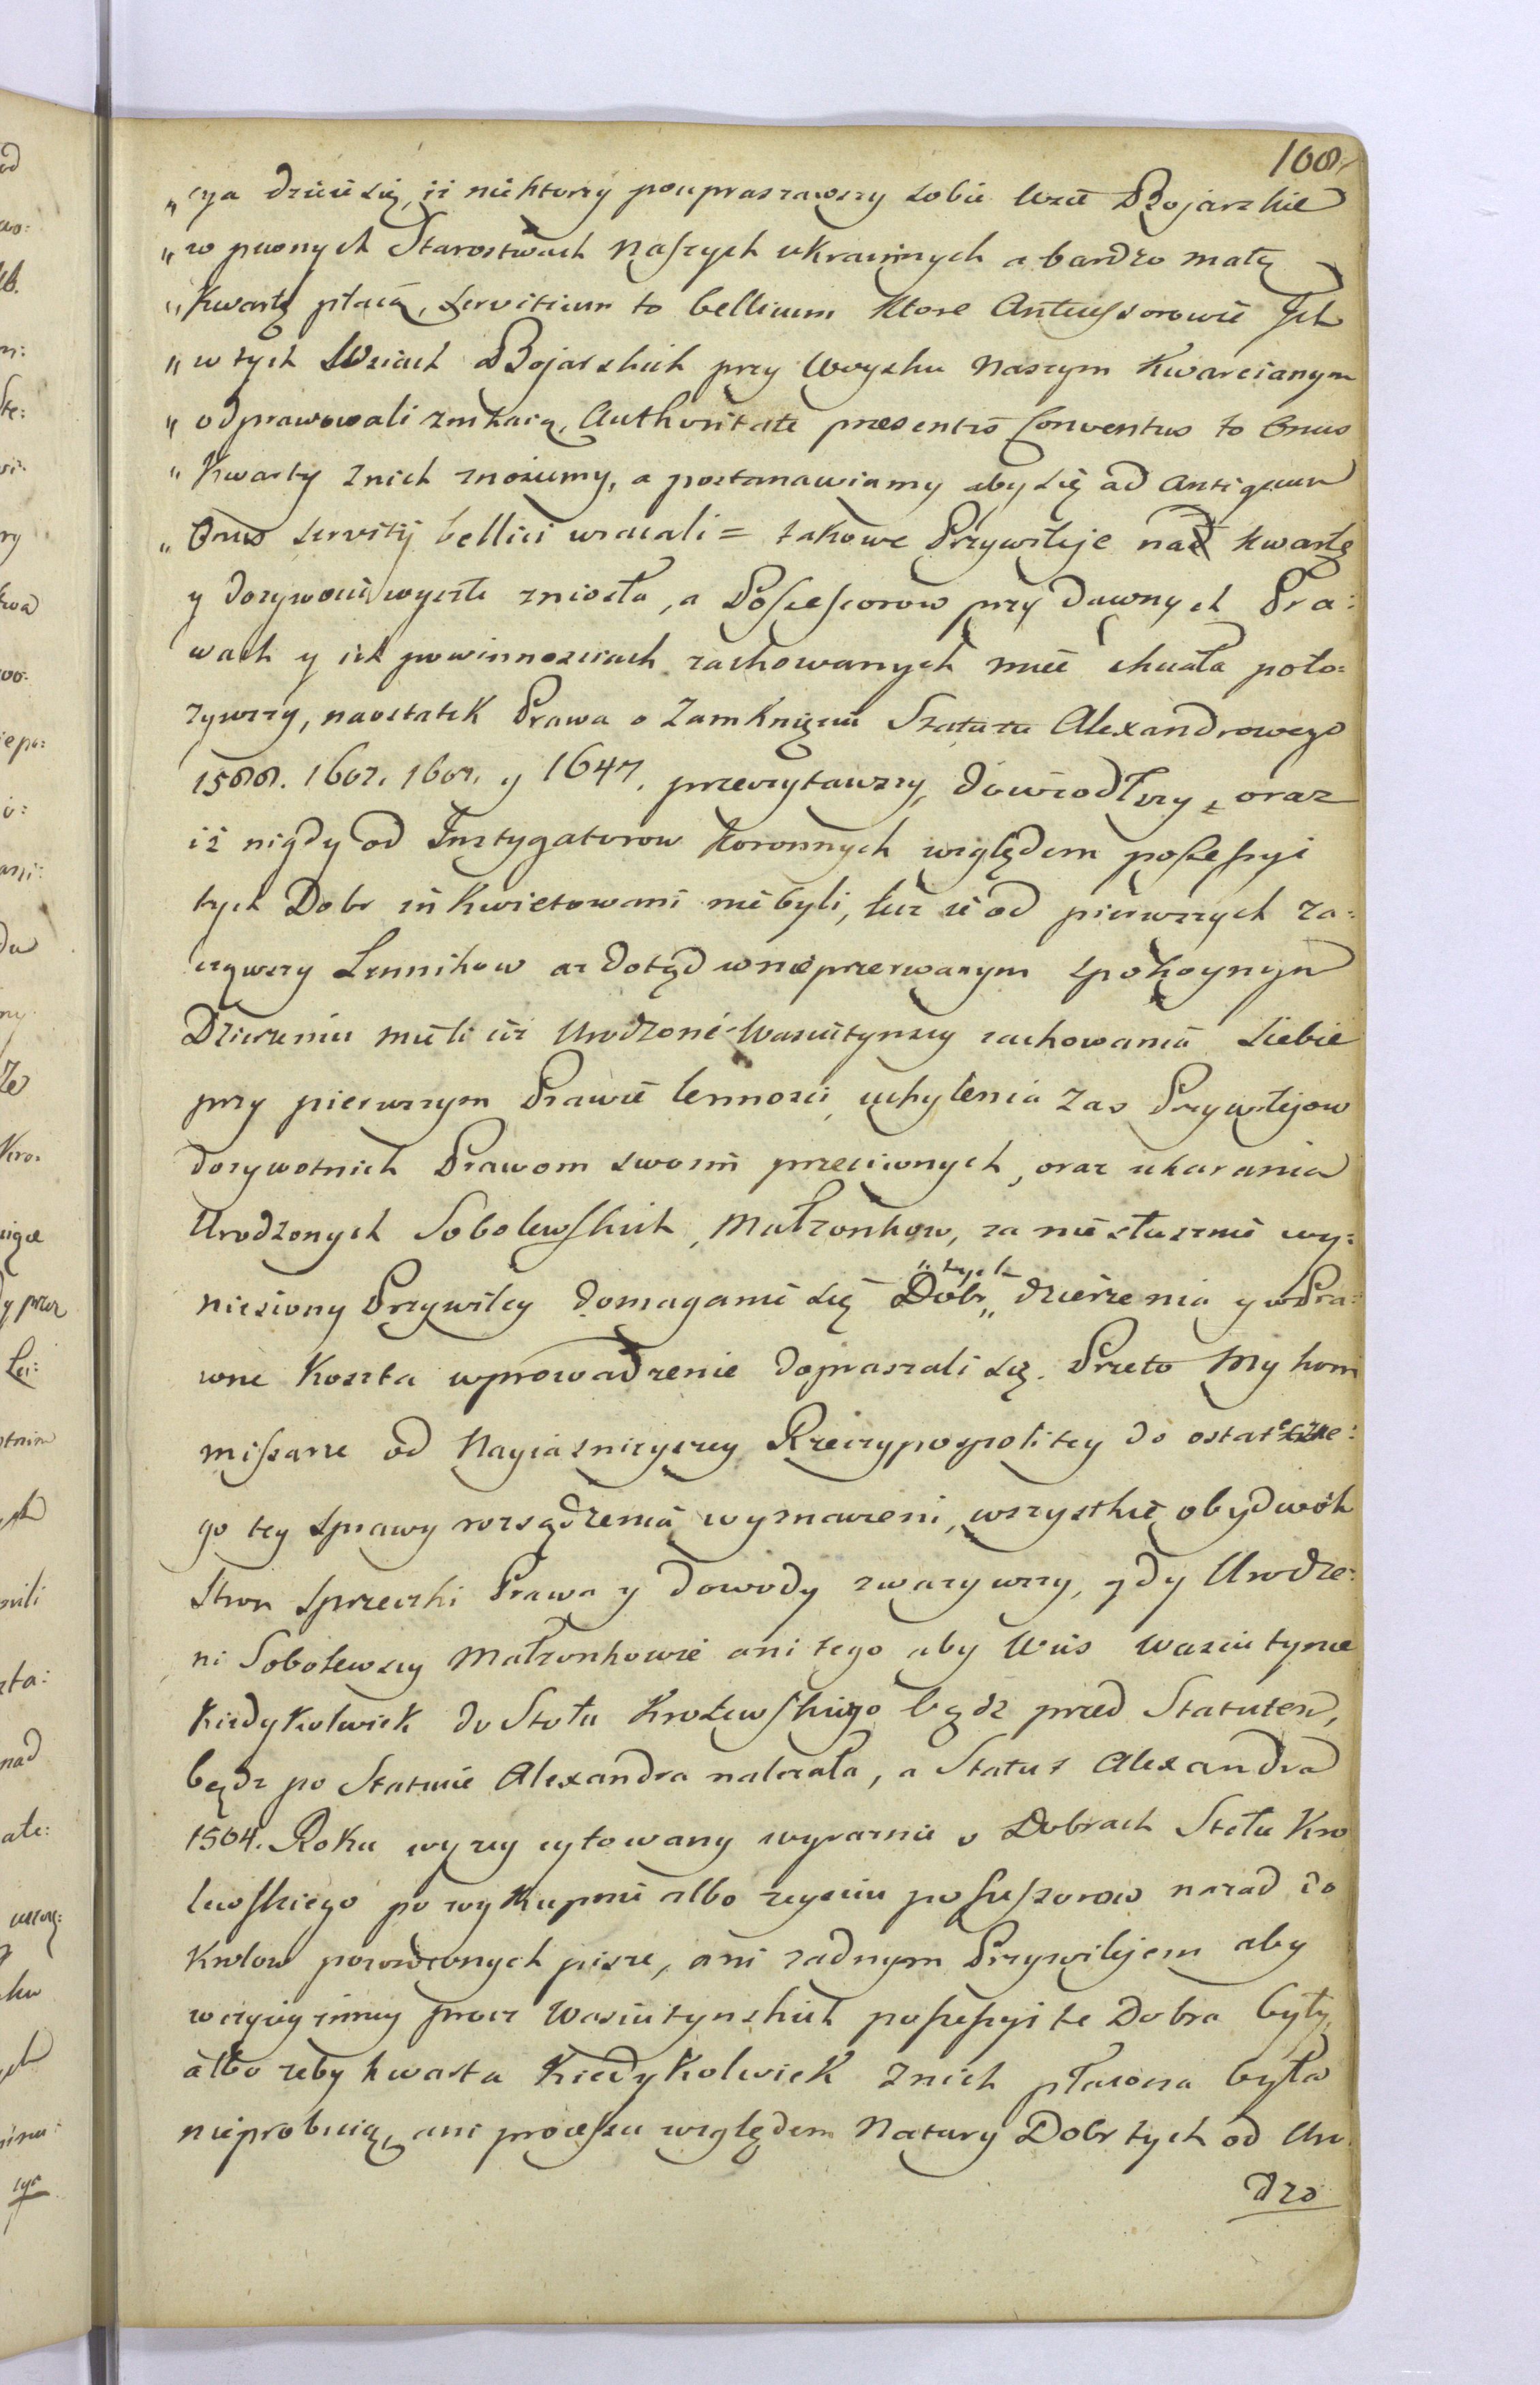 108
„cya dzieie się, iż niektorzy poupraszawszy sobie Wsie Bojarskie
„w pewnych Starostwach Naszych ukrainnych a bardzo małą
„Kwartę płacą, servitium to bellicum ktore Antecessorowie Ich
„w tych Wsiach Bojarskich przy Woysku Naszym Kwarcianym
„odprawowali zmkaią, Authoritate presentis Conventus to Onus
„Kwarty z nich znosiemy, a postanawiamy aby się ad antiquum
„Onus servitij bellici wracali = takowe Przywileje nad kwartę
y dozywocie wyszłe zniosła, a Possessorow przy dawnych Pra:
wach y ich powinnosciach zachowanych miec chciała poło:
zywszy, naostatek Prawa o Zamknięciu Statutu Alexandrowego
1588. 1607. 1601. y 1647. przeczytawszy, dowiodłszy, oraz
iż nigdy od Instygatorow Koronnych względem possessyi
tych Dobr inkwietowani nie byli, lecz iż od pierwszych za:
cząwszy Lennikow az dotąd w nieprzerwanym spokoynym
Dzierzeniu mieli ciż Urodzeni Wasiutynscy zachowania siebie
przy pierwszym Prawie lennosci, uchylenia zas Przywilejow
dozywotnich Prawom swoim przeciwnych, oraz ukarania
Urodzonych Sobolewskich, Małzonkow, za niesłusznie wy:
niesiony Przywiley domaganie się Dobr „tych„ dzierzenia y w Pra:
wne Koszta wprowadzenie dopraszali się. Przeto My kom
missarze od Nayiasnieyszey Rzeczypospolitey do ostateczne:
go tey sprawy rozsądzenia wyznaczeni, wszystkie obydwoch
Stron sprzeczki Prawa y dowody zwazywszy, gdy Urodze:
ni Sobolewscy Małzonkowie ani tego aby Wies Wasiutynce
kiedykolwiek do Stołu Krolewskiego bądz przed Statutem,
bądz po Statucie Alexandra nalezała, a Statut Alexandra
1504. Roku wyzey cytowany wyraznie o Dobrach Stołu Kro
lewskiego po wykupnie albo zeysciu possessorow nazad do
Krolow powroconych pisze, ani zadnym Przywilejem aby
w czyiey inney procz Wasiutynskich possessyi te Dobra były,
albo zeby kwarta kiedykolwiek z nich płacona była
nieprobuią, ani processu względem Natury Dobr tych od Uro
dzo